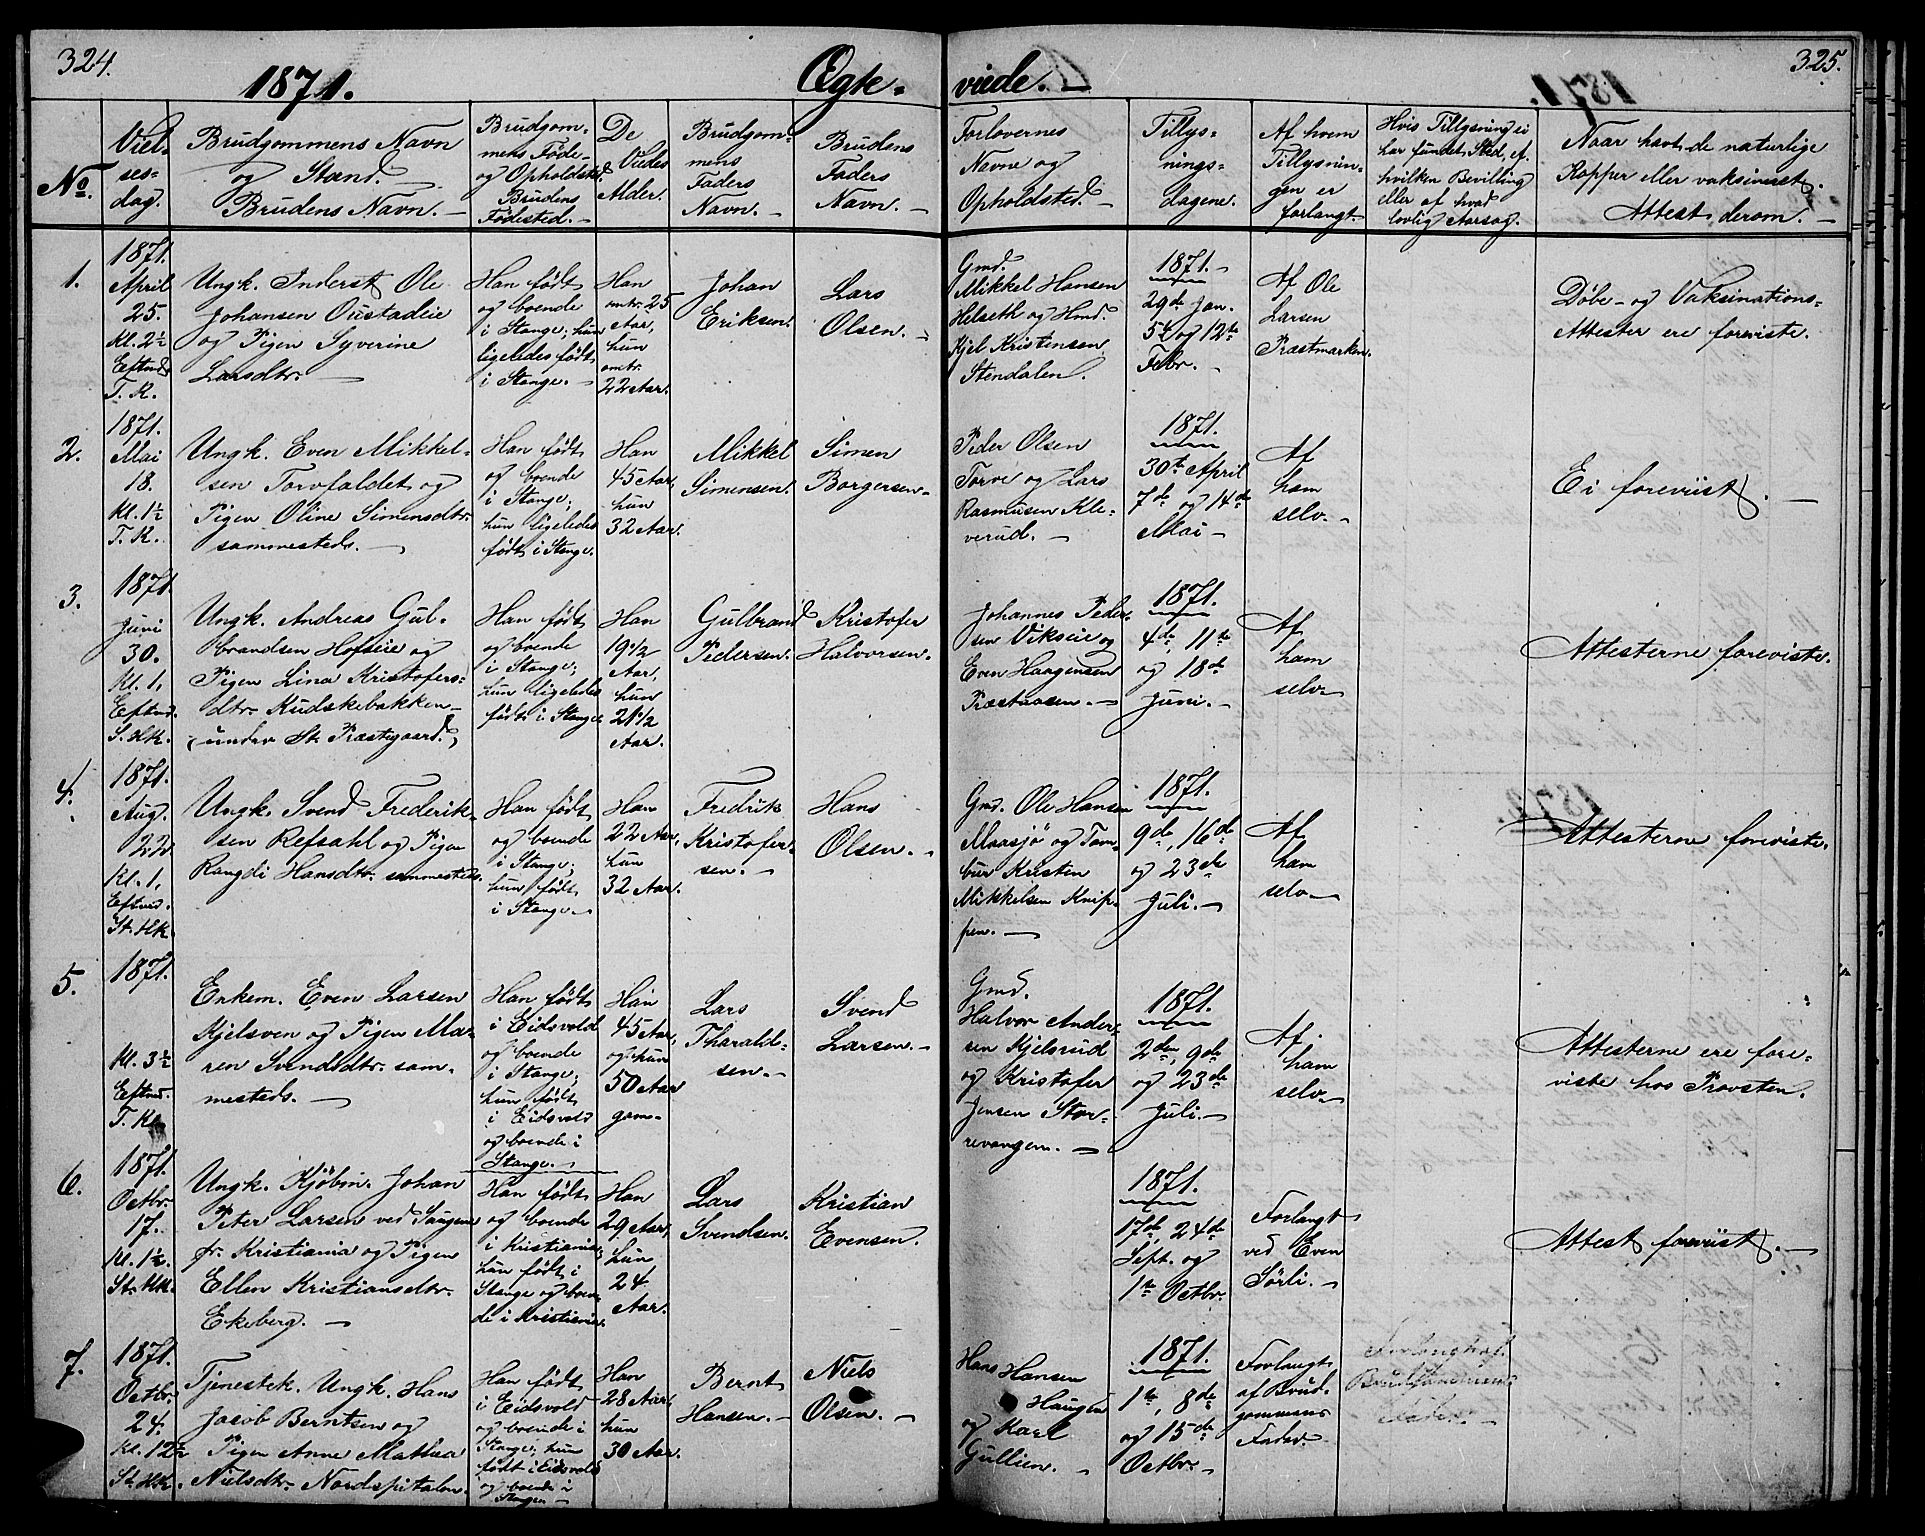 324.
1871.
Ægte-
viede.
325.
No.
Viel-
ses-
dag.
Brudgommens Navn
og Stand.
Brudens Navn.
Brudgom-
mens Føde-
og Opholdsted.
Brudens
Fødested.
De
Viedes
Alder.
Brudgom-
mens
Faders
Navn.
Brudens
Faders
Navn.
Forlovernes
Navne og
Opholdsted.
Tillys-
nings-
dagene.
Af hvem
Tillysnin-
gen er
forlangt.
Hvis Tillysning ei
har fundet Sted, ef.
hvilken Bevilling
eller af hvad
lovlig Aarsag.
Naar havt de naturlige
Kopper eller vaksineret.
Attest derom.
1.
1871.
April
25.
Kl. 2½
Eftmd.
T. K.
Ungk. Inderst Ole
Johansen Oustadeie
og Pigen Syverine
Larsdtr.
Han født
og boende
i Stange; hun
ligeledes født
i Stange.
Han
omtr. 25
Aar,
hun
omtr.
22 Aar.
Johan
Eriksen.
Lars
Olsen.
Gmd.
Mikkel Hansen
Helseth og Hmd.
Kjel Kristensen
Stendalen.
1871.
29de Jan.
5te og 12te
Febr.
Af Ole
Larsen
Præstmarken.
Døbe- og Vaksinations-
Attester ere foreviste.
2.
1871.
Mai
18.
Kl. 1½
T. K.
Ungk. Even Mikkel-
sen Torvfaldet og
Pigen Oline Simensdtr.
sammesteds.
Han født
og boende
i Stange;
hun ligeledes
født i Stange.
Han
45 Aar,
hun
32 Aar.
Mikkel
Simensen.
Simen
Borgersen.
Peder Olsen
Torve og Lars
Rasmusen Kle-
verud.
1871.
30te April
7de og 14de
Mai
Af
ham
selv.
Ei foreviist.
3.
1871.
Juni
30.
Kl. 1,
Eftmd.
S. HK.
Ungk. Andreas Gul-
brandsen Hofseie og
Pigen Lina Kristofers-
dtr. Kudskebakken
(under St. Præstegaard.)
Han født
og boende
i Stange;
hun ligeledes
født i Stange
Han
19½
Aar,
hun
21½
Aar.
Gulbrand
Pedersen.
Kristofer
Halvorsen.
Johannes Peder-
sen Vikseie og
Even Haagensen
Præstaasen.
1871.
4de, 11te
og 18de
Juni.
Af
ham
selv.
Attesterne foreviste.
4.
1871.
Aug.
22
Kl. 1,
Eftmd.
St. HK.
Ungk. Svend Frederik-
sen Refsahl og Pigen
Rangdi Hansdtr. sammesteds.
Han født
og boende
i Stange;
hun født
i Stange.
Han
22 Aar,
hun
32 Aar.
Fredrik
Kristofer-
sen.
Hans
Olsen.
Gmd. Ole Hansen
Maasjö og Tam-
bur Kristen
Mikkelsen Knip-
pen.
1871.
9de, 16de
og 23de
Juli.
Af
ham
selv.
Attesterne foreviste.
5.
1871.
Kl. 3½
Eftmd.
T. K.
Enkem. Even Larsen
Kjelsven og Pigen Ma-
ren Svendsdtr. sam-
mesteds.
Han født
i Eidsvold
og boende
i Stange;
hun født
i Eidsvold
og boende i
Stange.
Han
45 Aar,
og hun
50 Aar
gam-
Lars
Tharald-
sen.
Svend
Larsen.
Gmd.
Halvor Ander-
sen Kjelsrud
og Kristofer
Jensen Stor-
revangen.
1871.
2den, 9de
og 23de
Juli.
Af
ham
selv.
Attesterne ere fore-
viste hos Provsten.
6.
1871.
Octbr.
17.
Kl. 1½.
St. HK.
Ungk. Kjöbm. Johan
Peter Larsen ved Saugene
pr. Kristiania og Pigen
Ellen Kristiansdtr.
Ekeberg.
Han født
og boende
i Kristiania;
hun født i
Stange og boen-
de i Kristiania.
Han
29 Aar,
hun
24
Aar.
Lars
Svendsen.
Kristian
Evensen.
1871.
17de, 24de
Sept. og
1te Octbr.
Forlangt
ved Even
Sörli.
Attest foreviist.
7.
1871.
Octbr.
24.
Kl. 12½
St. HK.
Tjenestek. Ungk. Hans
Jacob Berntsen og
Pigen Anne Mathea
Nielsdtr. Nordspitalen.
Han født
i Eidsvold
og boende i
Stange; hun
født i Eidsvold
og boende i
Stangen
Han
28 Aar,
hun
30 Aar.
Bernt
Hansen.
Niels
Olsen.
Hans Hansen
Haugen
og Karl
Gullien.
1871.
1te, 8de
og 15de
Octbr.
Forlangt
af Brud-
gommens
Fader.